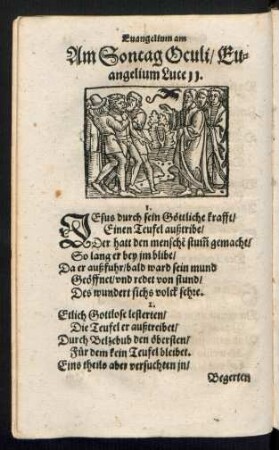 Euangelium am
Am Sontag Oculi/ Eu-
angelium Luce 11.
1.
JEsus durch sein Göttliche krafft/
Einen Teufel außtribe/
Der hatt den menschē stum̄ gemacht/
So lang er bey jm blibe/
Da er außfuhr/ bald ward sein mund
Geöffnet/ vnd redet von stund/
Des wundert sichs volck sehre.
2.
Etlich Gottlose lesterten/
Die Teufel er außtreibet/
Durch Belzebub den öbersten/
Für dem kein Teufel bleibet.
Eins theils aber versuchten jn/
Begerten